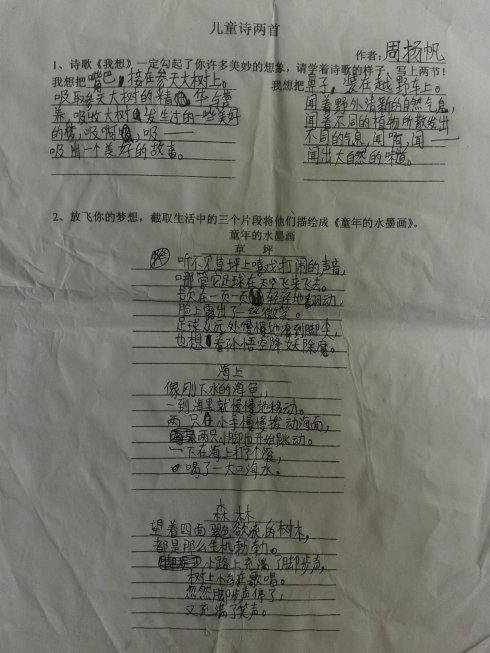 儿童诗两首
作者：周扬帆
1、诗歌《我想》一定勾起了你许多美妙的想象，请学着诗歌的样子，写上两节！
我想把嘴巴，接在参天大树上。
吸取参天大树的精华、营
养，吸收大树发生过的一些美好
的梦，吸啊吸，吸——
吸出一个美好的故事。
我想把鼻子，装在越野车上。
闻着野外清新的自然气息，
闻着不同的植物所散发出
不同的气息，闻啊，闻——
闻出大自然的味道。
2、放飞你的梦想，截取生活中的三个片段将他们描绘成《童年的水墨画》。
童年的水墨画
草 坪
听不见草坪上嬉戏打闹的声音，
哪管它足球在天空飞来飞去。
书页在一页一页轻轻地翻动，
脸上露出了一丝微笑。
足球从远处慢慢地滚到脚尖，
也想看孙悟空降妖除魔。
海上
像刚下水的海龟，
一到海里就慢慢地移动。
两只小手慢慢拨动海面，
两只小脚也开始跳动。
一下在海上打了个滚，
喝了一大口海水。
森林
望着四面翠色欲流的树木，
都是那么生机勃勃。
小路上充满了脚步声，
树上小鸟在歌唱。
忽然脚步声停了，
又充满了笑声。